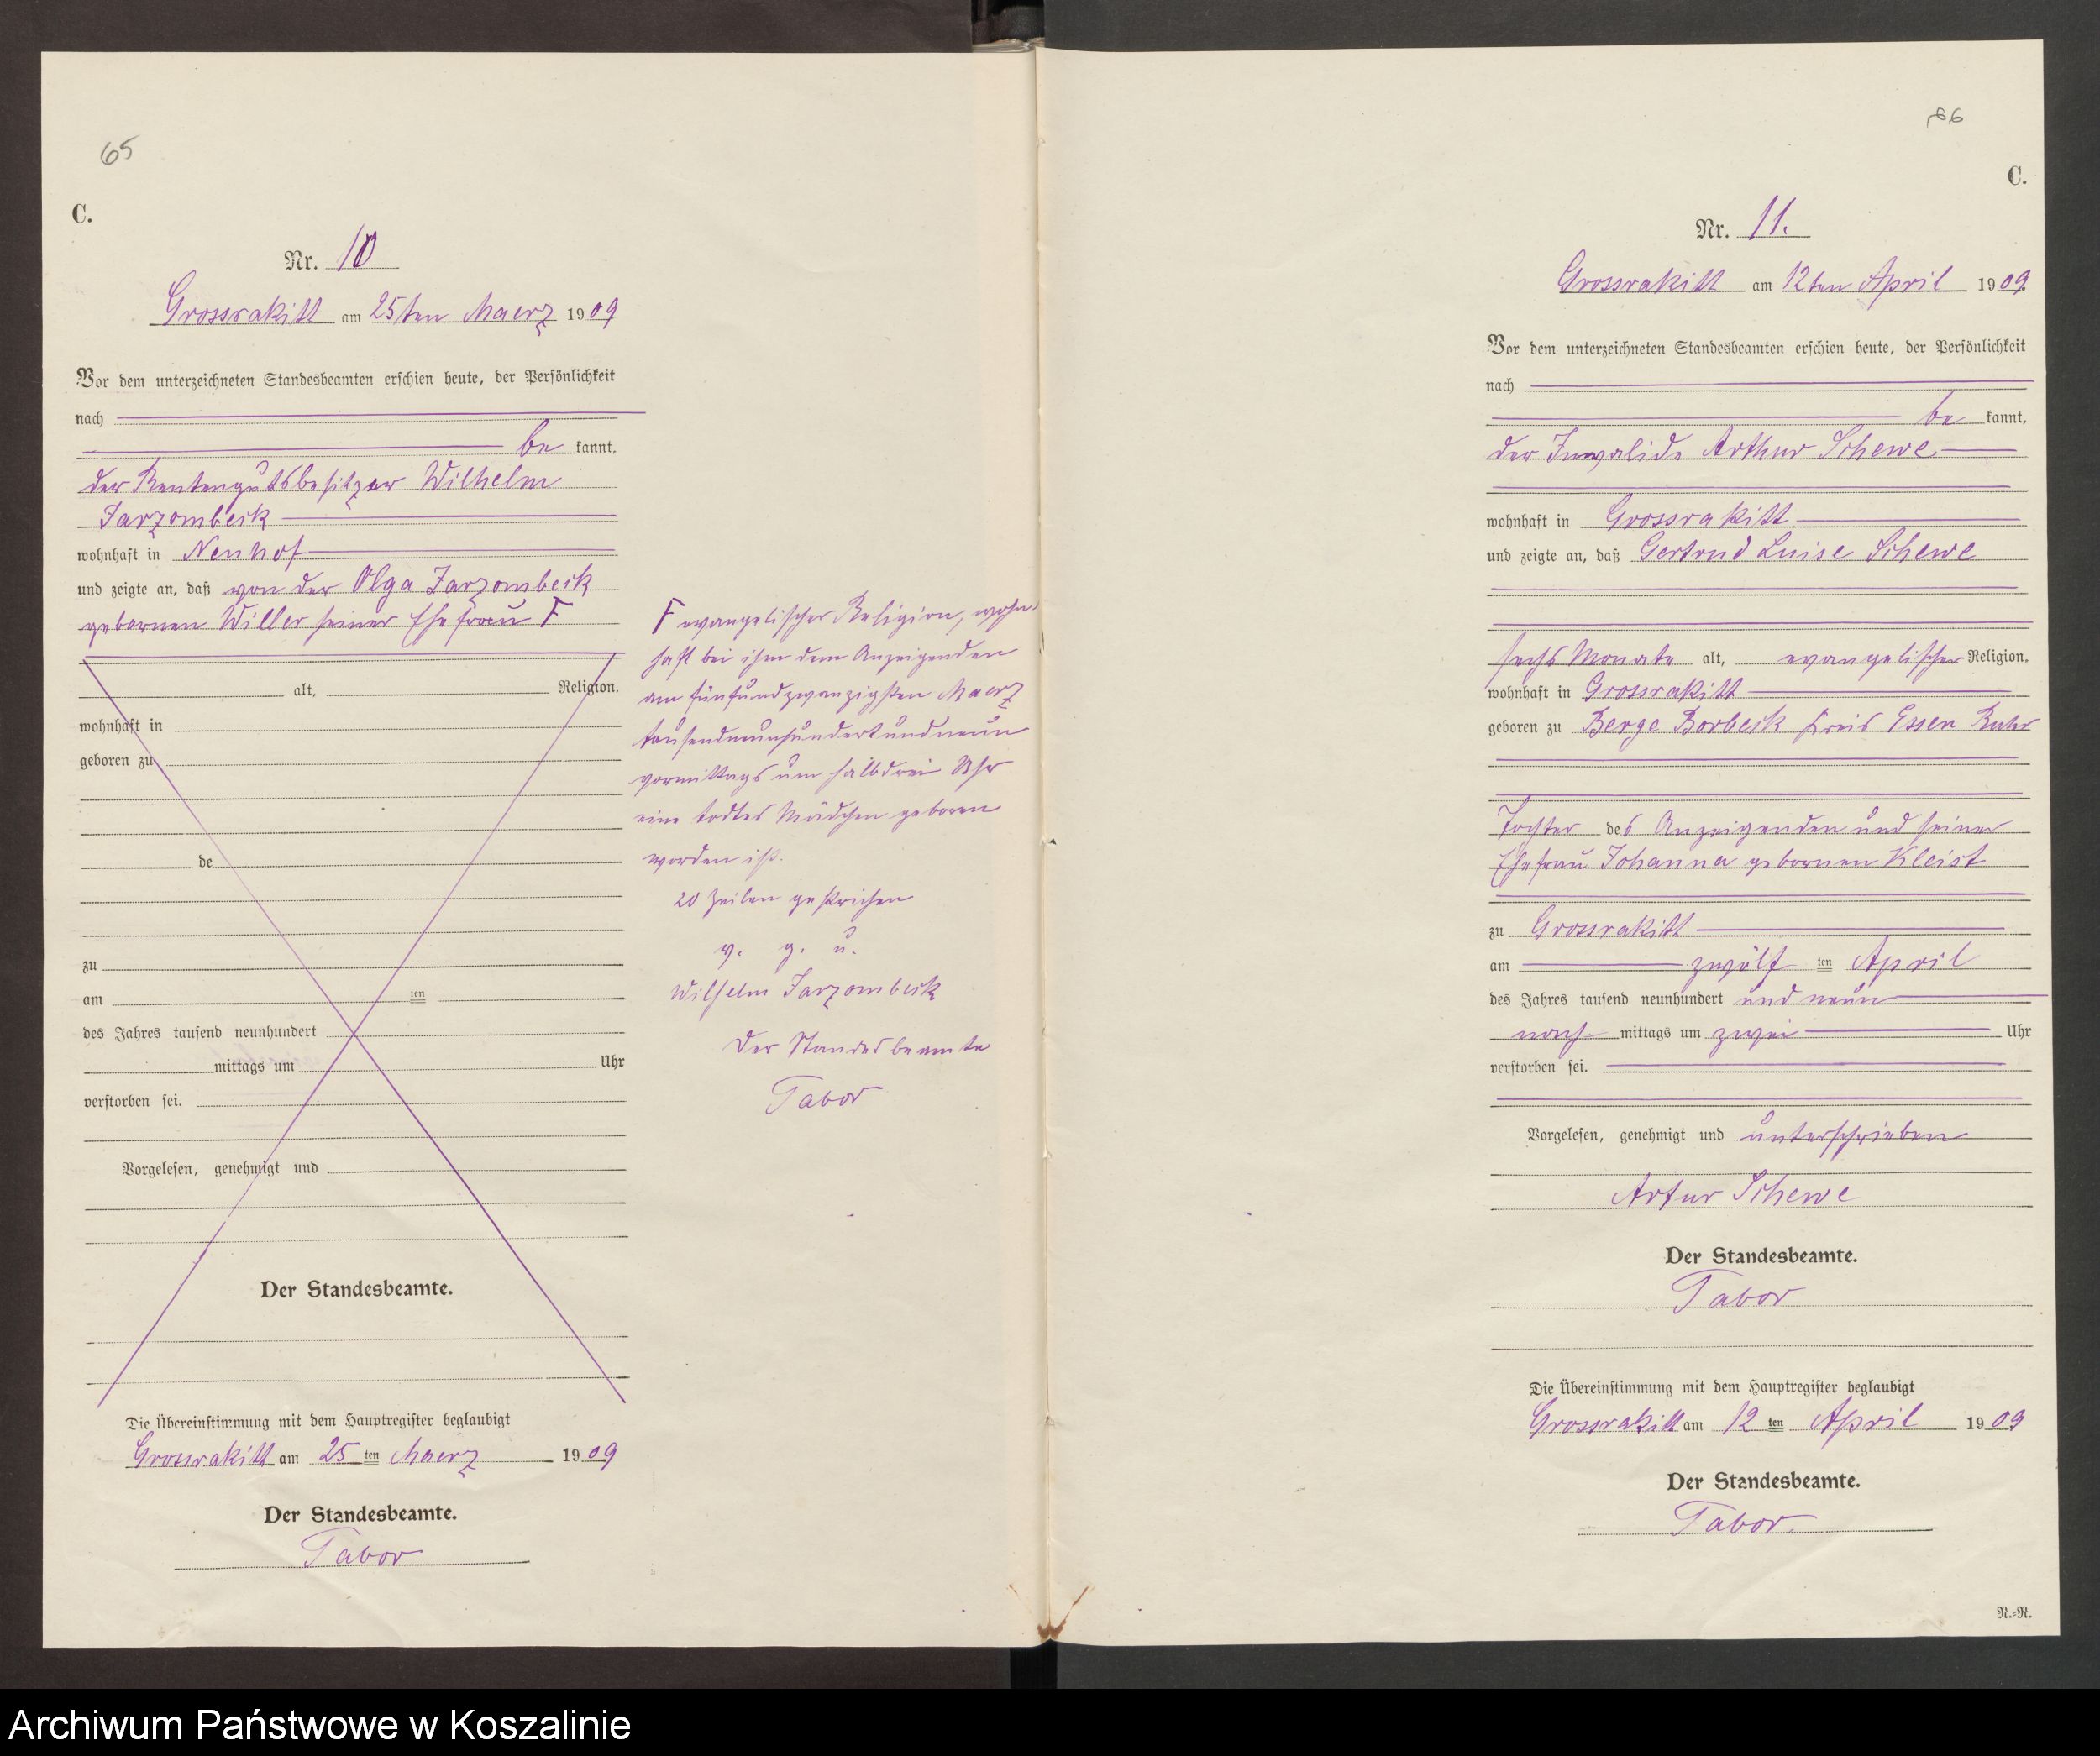 65
C.
Nr. 10
Grossrakitt am 25ten Maerz 1909
Vor dem unterzeichneten Standesbeamten erschien heute, der Persönlichkeit
nach
be kannt,
der Rentengutsbesitzer Wilhelm
Jarzombeck
wohnhaft in Neuhof
und zeigte an, daß von der Olga Jarzombeck
gebornen Willer seiner Ehefrau F
alt, Religion.
wohnhaft in
geboren zu
de
zu
am ten
des Jahres tausend neunhundert
mittags um Uhr
verstorben sei.
Vorgelesen, genehmigt und
Der Standesbeamte.
Die Übereinstimmung mit dem Hauptregister beglaubigt
Grossrakitt am 25 ten Maerz 1909
Der Standesbeamte.
Tabor
F evangelischer Religion, wohn-
haft bei ihm dem Anzeigenden
am fünfundzwanzigsten Maerz
tausendneunhundertundneun
vormittags um halbdrei Uhr
eine todtes Mädchen geboren
worden ist.
20 Zeilen gestrichen
v. g. u.
Wilhelm Jarzombeck
Der Standesbeamte
Tabor
C.
Nr. 11.
Grossrakitt am 12ten April 1909.
Vor dem unterzeichneten Standesbeamten erschien heute, der Persönlichkeit
nach
be kannt,
der Invalide Arthur Schewe
wohnhaft in Grossrakitt
und zeigte an, daß Gertrud Luise Schewe
sechs Monate alt, evangelischer Religion.
wohnhaft in Grossrakitt
geboren zu Berge Borbeck Kreis Essen Ruhr
Tochter des Anzeigenden und seiner
Ehefrau Johanna gebornen Kleist
zu Grossrakitt
am zwölf ten April
des Jahres tausend neunhundert und neun
nach mittags um zwei Uhr
verstorben sei.
Vorgelesen, genehmigt und unterschrieben
Artur Schewe
Der Standesbeamte.
Tabor
Die Übereinstimmung mit dem Hauptregister beglaubigt
Grossrakitt am 12 ten April 1909
Der Standesbeamte.
Tabor.
N.-R.
Archiwum Państwowe w Koszalinie